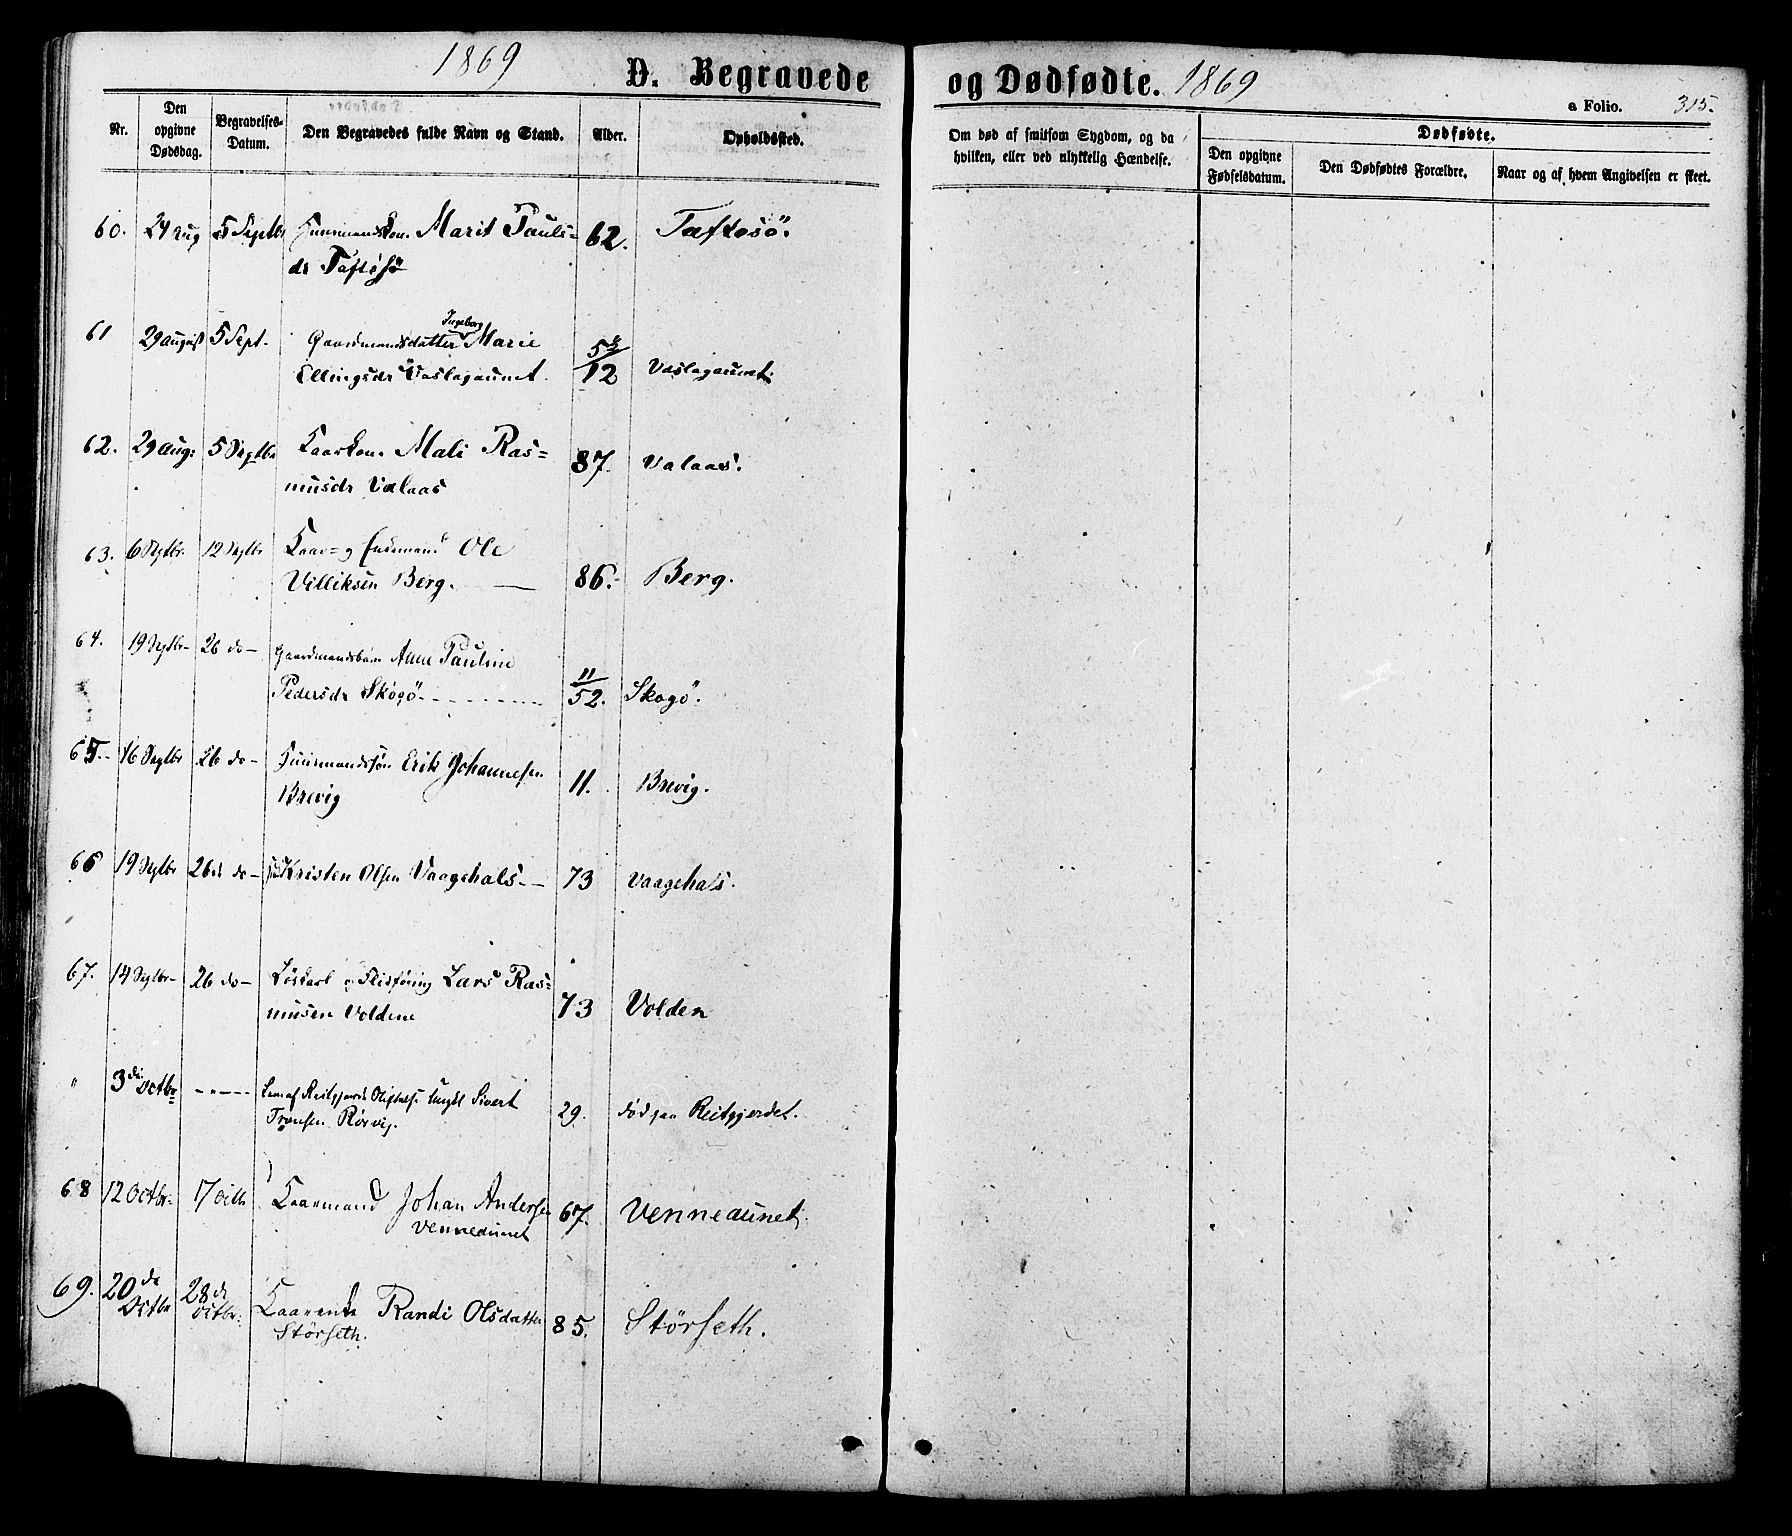 1869
D. Begravede
og Dødfødte. 1869
a Folio. 315.
Nr.
Den opgivne Dødsdag.
Begravelses-Datum.
Den Begravedes fulde Navn og Stand.
Alder.
Opholdssted.
Om død af smitsom Sygdom, og da hvilken, eller ved ulykkelig Hændelse.
Dødfødte.
Den opgivne Fødselsdatum.
Den Dødfødtes Forældre.
Naar og af hvem Angivelsen er skeet.
60. 24 Aug 5 Septbr Marit Pauls= 62. Taftøsö.
dr Taftøsö
61 29 August 5 Sept. Gaardmandsdatter Ingeborg Marie 5/12
Ellingsdr Vaslagaunet. Vaslagaunet.
62. 29 Aug: 5 Septbr Kaarkone Mali Ras= 87. Valaas.
musdr Valaas
63. 6 Septbr. 12 Septbr Kaar= og Enkemand Ole
Villiksen Berg. 86. Berg.
64. 19 Septbr 26 do Gaardmandsbarn Anne Pauline 11/52.
Pedersdr Skogö Skogö.
65. 16 Septbr 26 do Erik Johannesen 11. Brevig.
Brevig
66 19 Septbr 26 do Kristen Olsen Vaagehals 73 Vaagehals.
67. 14 Septbr 26 do Løskarl og Lars Ras= 73 Volden
musen Voldene
" 3die Octbr Lem af Reitgjerdets Sivert
Rørvig. 29. død paa Reitgjerdet.
68 12 Octbr 17 Octbr Kaarmand Johan Andersen 67. Venneaunet.
Venneaunet
69. 20de Octbr 28de Octbr. Kaarenke Randi Olsdatter 85. Störseth.
Störseth.